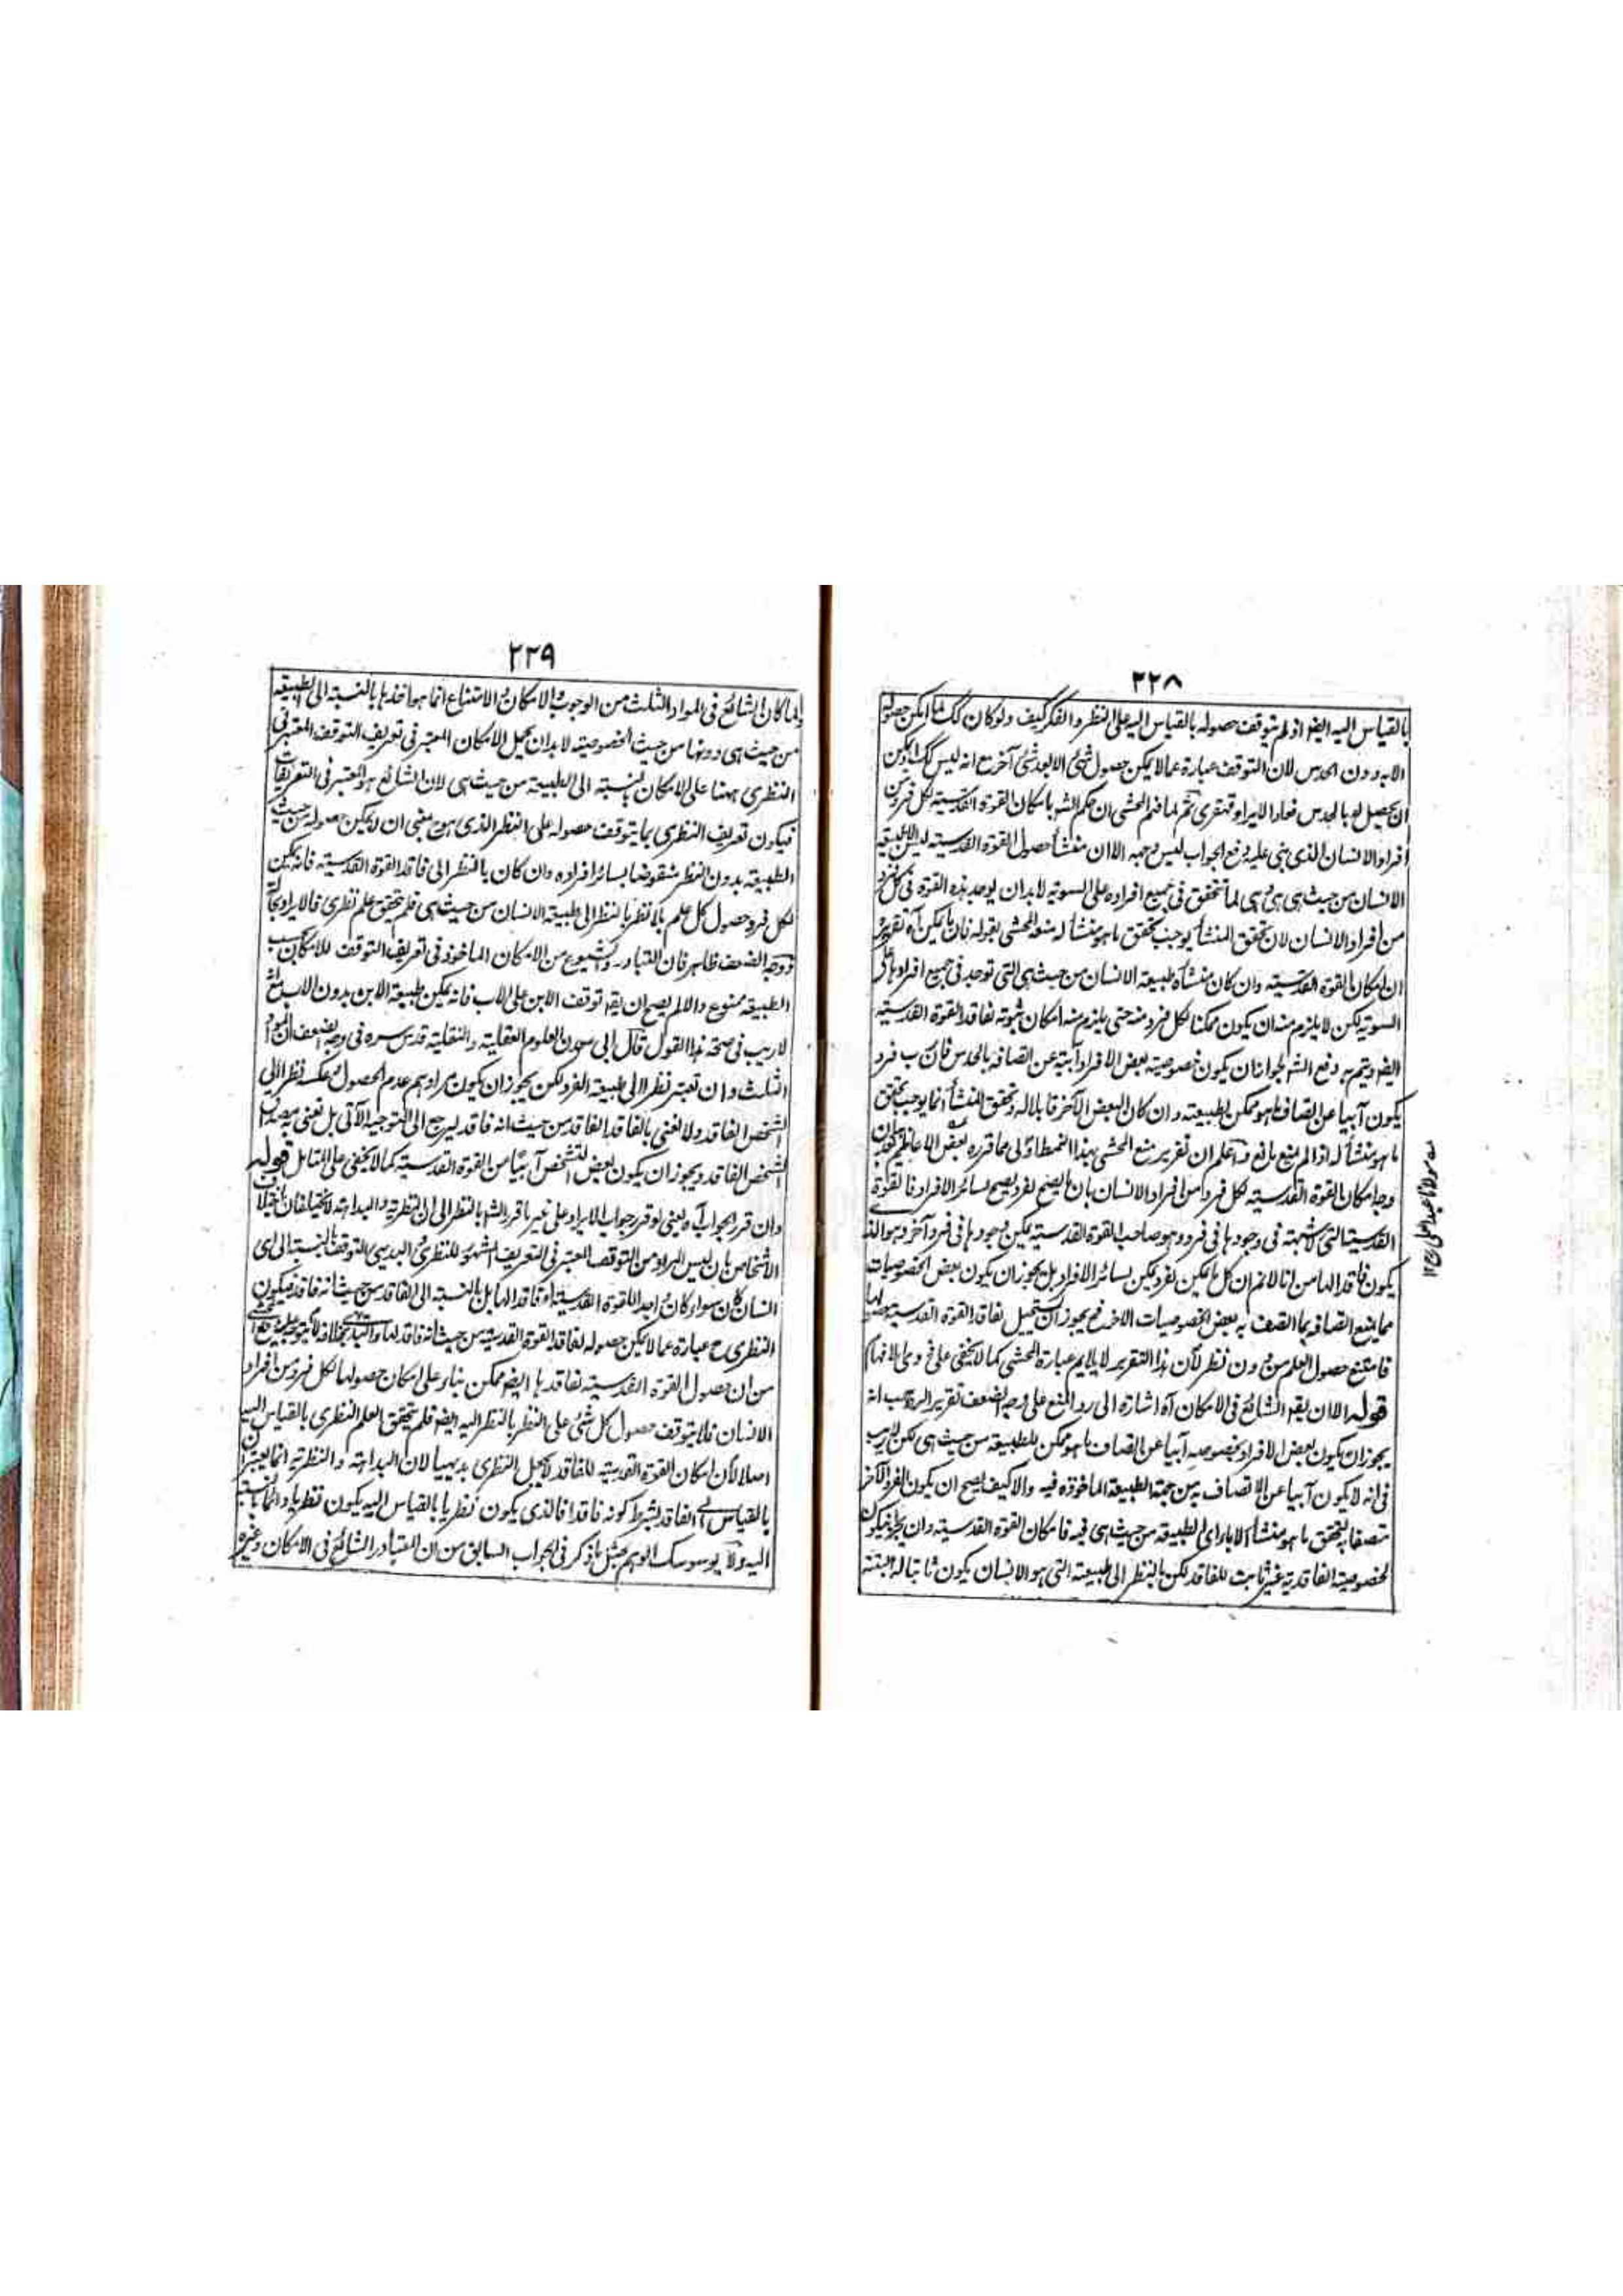 ٢٢٨
بالقياس اليه ايضا اذ لم يتوقف حصوله بالقياس اليه على النظر والفكر كيف ولو كان كك لما امكن حصوله
الا به دون الحدس لان التوقف عبارة عما لا يمكن حصول شئ الا بعد شئ آخر مع انه ليس كك اذ يمكن
ان يحصل له بالحدس فعاد الايراد قهقرى ثم لما فهم المحشى ان حكم الشه بامكان القوة القدسية لكل فرد من
افراد الانسان الذى بنى عليه دفع الجواب ليس وجهه الا ان منشأ حصول القوة القدسية ليس الا طبيعة
الانسان من حيث هى هى وهى لما تتحقق فى جميع افراده على السوية لا بد ان يوجد هذه القوة فى كل فرد
من افراد الانسان لان تحقق المنشأ يوجب تحقق ما هو منشأ له منعه المحشى بقوله فان ما يمكن آه تقريره
ان امكان القوة القدسية وان كان منشأه طبيعة الانسان من حيث هى التى توجد فى جميع افرادها على
السوية لكن لا يلزم منه ان يكون ممكنا لكل فرد منه حتى يلزم منه امكان ثبوته لفاقد القوة القدسية
ايضا ويتم به دفع الشه لجواز ان يكون خصوصية بعض الافراد آبية عن اتصافه بالحدس فان رب فرد
يكون آبيا عن اتصاف ما هو ممكن لطبيعته وان كان البعض الآخر قابلا له وتحقق المنشأ انما يوجب تحقق
ما هو منشأ له اذا لم يمنع مانع واعلم ان تقرير منع المحشى بهذا النمط اولى مما قرره بعض الاعاظم بقوله ان
وجه امكان القوة القدسية لكل فرد من افراد الانسان بان ما يصح لفرد يصح لسائر الافراد فالقوة
القدسية التى لا شبهة فى وجودها فى فرد وهو صاحب القوة القدسية يمكن وجودها فى فرد آخر وهو الذى
يكون فاقدا لها من انا لا نم ان كل ما يمكن لفرد يمكن لسائر الافراد بل يجوز ان يكون بعض الخصوصيات
مما يمنع اتصافه بما اتصف به بعض الخصوصيات الاخر فح يجوز ان يستحيل لفاقد القوة القدسية حصولها
فامتنع حصول العلم من دون نظر لان هذا التقرير لا يلايم عبارة المحشى كما لا يخفى على ذوى الافهام
قوله الا ان يقه الشائع فى الامكان آه اشارة الى رد المنع على وجه الضعف تقرير الرد حسب انه
يجوز ان يكون لبعض الافراد خصوصية آبيا عن اتصاف ما هو ممكن للطبيعة من حيث هى لكن لا ريب
فى انه لا يكون آبيا عن الاتصاف به من جهة الطبيعة الماخوذة فيه والا كيف يصح ان يكون الفرد الآخر
متصفا به لتحقق ما هو منشأ الاباء اى الطبيعة من حيث هى فيه فامكان القوة القدسية وان
لخصوصية الفاقدية غير ثابت للفاقد لكن بالنظر الى طبيعته التى هو الانسان يكون ثابتا له البتة
مولانا عبدالعلى رح ١٢
٢٢٩
ولما كان الشائع فى المواد الثلث من الوجوب والامكان والامتناع انما هو اخذها بالنسبة الى الطبيعة
من حيث هى دونها من حيث الخصوصية لا بد ان يحمل الامكان المعتبر فى تعريف التوقف المعتبر فى
النظرى ههنا على الامكان بالنسبة الى الطبيعة من حيث هى لان الشائع هو المعتبر فى التعريفات
فيكون تعريف النظرى بما يتوقف حصوله على النظر الذى هو ح بمعنى ان لا يمكن حصوله من حيث
الطبيعة بدون النظر منقوضا بسائر افراده وان كان بالنظر الى فاقد القوة القدسية فانه يمكن
لكل فرد حصول كل علم بلا نظر بالنظر الى طبيعة الانسان من حيث هى فلم يتحقق علم نظرى فالايراد بحاله
ووجه الضعف ظاهر فان التبادر والشيوع من الامكان الماخوذ فى تعريف التوقف للامكان بحسب
الطبيعة ممنوع والا لم يصح ان يقه توقف الابن على الاب فانه يمكن طبيعة الابن بدون الاب مع انه
لا ريب فى صحة هذا القول قال ابى معدن العلوم العقلية والنقلية قدس سره فى وجه الضعف ان المواد
الثلث وان تعتبر نظرا الى طبيعة الفرد لكن يجوز ان يكون مرادهم عدم الحصول بعكسه نظرا الى
الشخص الفاقد ولا نعنى بالفاقد الفاقد من حيث انه فاقد ليرجع الى التوجيه الآتى بل نعنى به مصداق
الشخص الفاقد ويجوز ان يكون بعض التشخص آبيا من القوة القدسية كما لا يخفى على المتأمل قوله
وان قرر الجواب آه يعنى لو قرر جواب الايراد على غير ما قرره الشه بالنظر الى ان النظرية والبداهة لا يختلفان باختلاف
الاشخاص بان ليس المراد من التوقف المعتبر فى التعريف المشهور للنظرى والبديهى التوقف بالنسبة الى اى
انسان كان سواء كان واجدا للقوة القدسية او فاقدا لها بل بالنسبة الى الفاقد من حيث انه فاقد فيكون
النظرى ح عبارة عما لا يمكن حصوله لفاقد القوة القدسية من حيث انه فاقد لها والبديهى بخلافه
من ان حصول القوة القدسية لفاقدها ايضا ممكن بناء على امكان حصولها لكل فرد من افراد
الانسان فلا يتوقف حصول كل شئ على النظر بالنظر اليه ايضا فلم يتحقق العلم النظرى بالقياس اليه
اصلا لان امكان القوة القدسية للفاقد لا يجعل النظرى بديهيا لان البداهة والنظرية انما يعتبران
بالقياس الى الفاقد بشرط كونه فاقدا فالذى يكون نظريا بالقياس اليه يكون نظريا
اليه ولا يوسوسك الوهم بمثل ما ذكر فى الجواب السابق من ان المتبادر الشائع فى الامكان وغيره